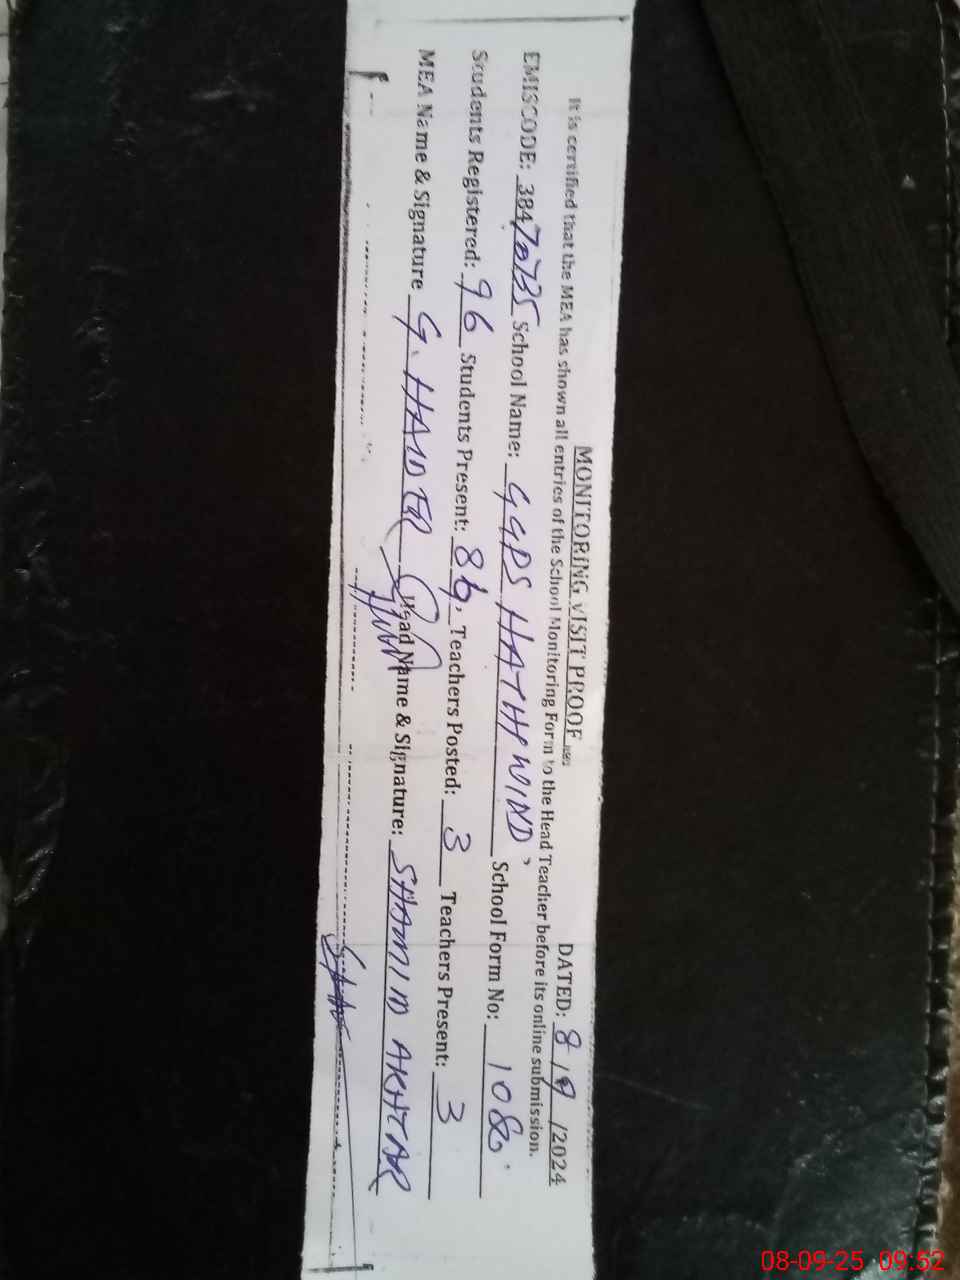 MONITORING VISIT PROOF DATED: 8/9/2024
It is certified that the MEA has shown all entries of the School Monitoring Form to the Head Teacher before its online submission.
EMISCODE: 38470735 School Name: GGPS HATHWIND, School Form No: 1080
Students Registered: 96 Students Present: 86, Teachers Posted: 3 Teachers Present: 3
MEA Name & Signature G. HAIDER Head Name & Signature: SHAMIM AKHTAR
08-09-25 09:52